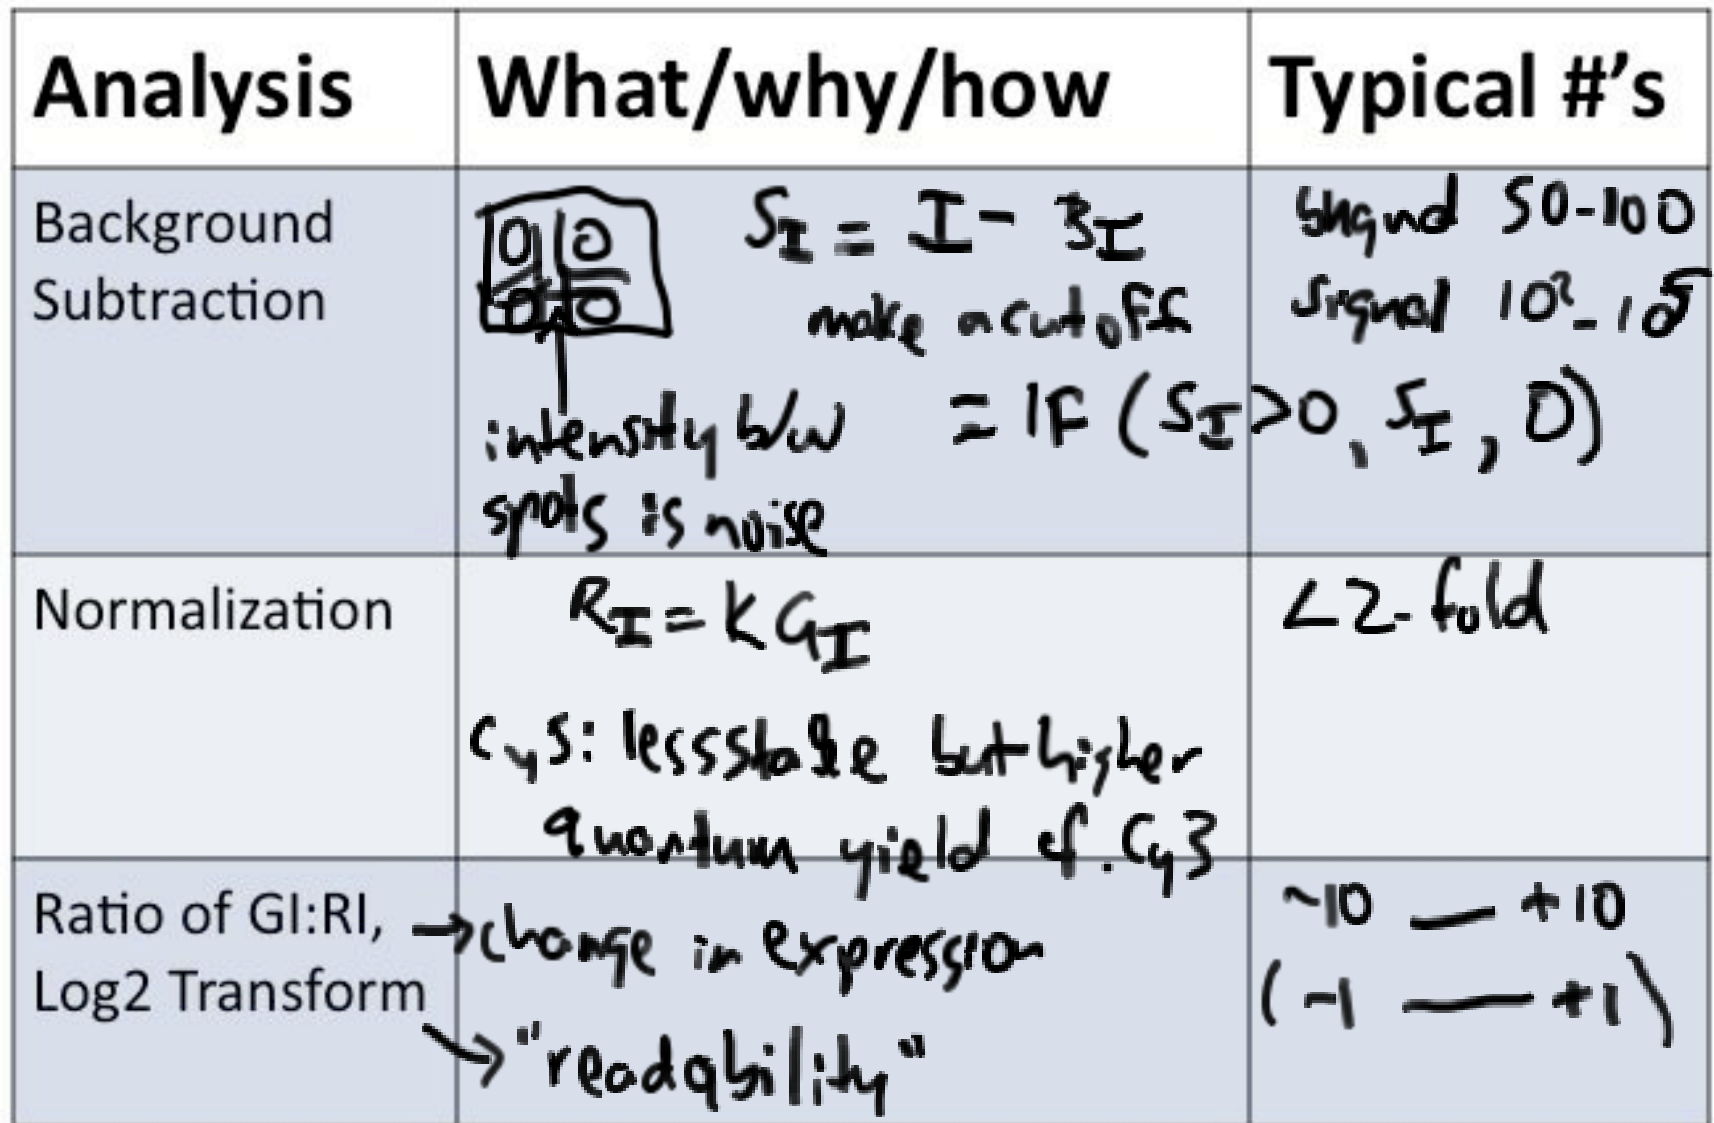 Analysis What/why/how Typical #'s
Background
Subtraction
S_I = I - B_I
make a cutoff
= IF (S_I>0, S_I, 0)
intensity b/w
spots is noise
bkgnd 50-100
signal 10²-10⁵
Normalization
R_I = K G_I
Cy5: less stable but higher
quantum yield cf. Cy3
<2-fold
Ratio of GI:RI,
Log2 Transform
→ change in expression
→ "readability"
~10 — +10
(-1 — +1)